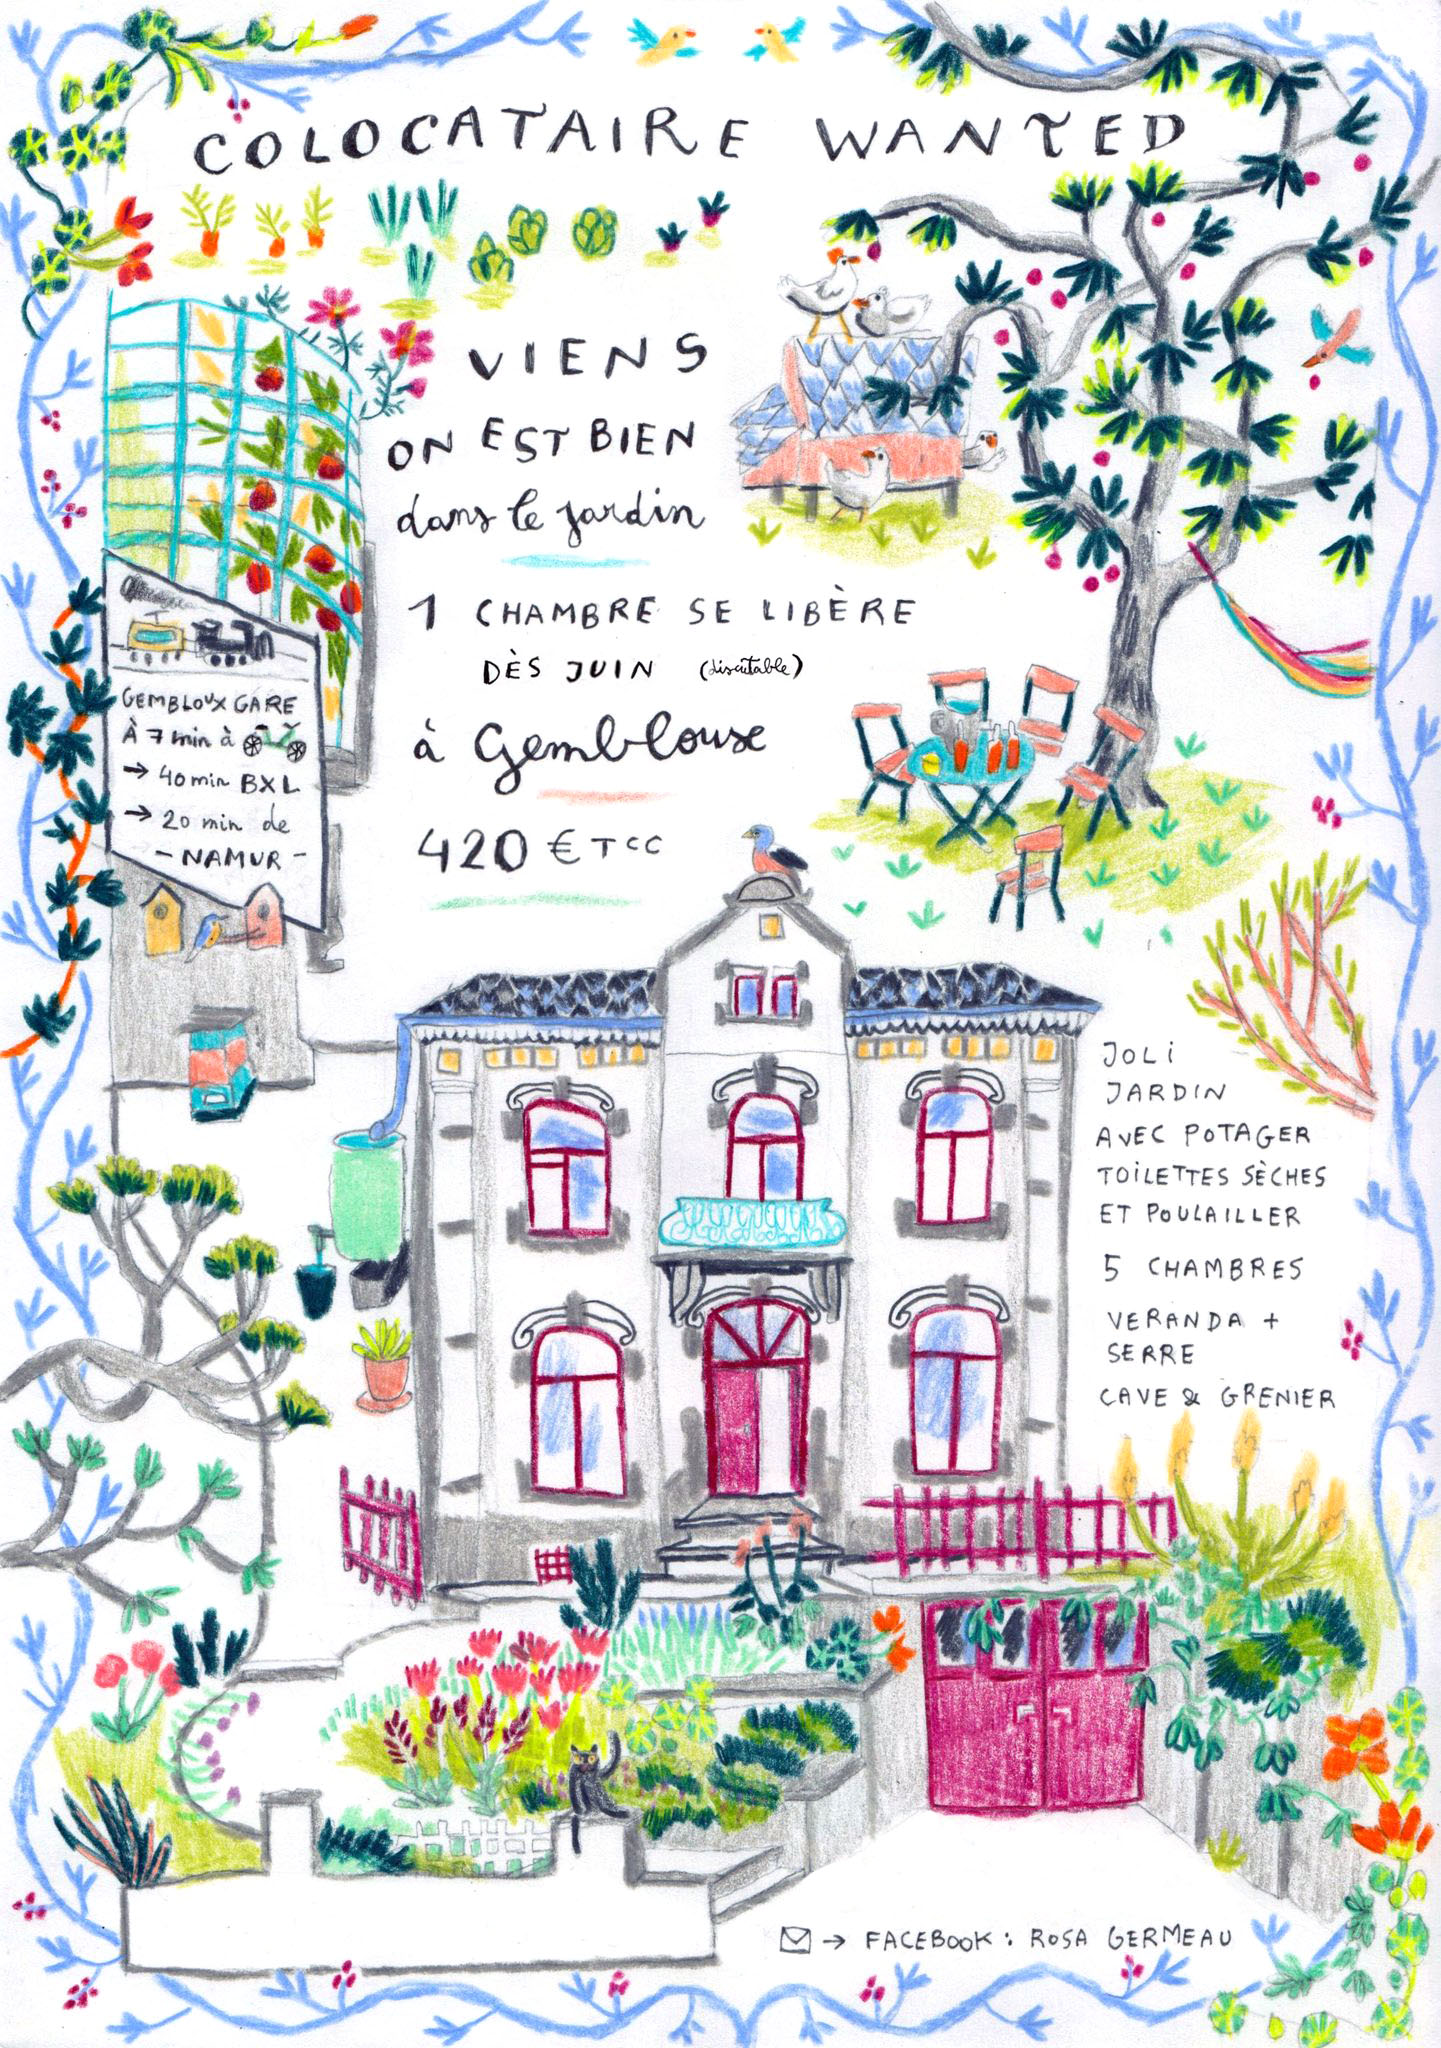 COLOCATAIRE WANTED
VIENS
ON EST BIEN
dans le jardin
1 CHAMBRE SE LIBÈRE
DÈS JUIN (discutable)
à Gemblouse
420 € TCC
GEMBLOUX GARE
À 7 min à
→ 40 min BXL
→ 20 min de
- NAMUR -
JOLI
JARDIN
AVEC POTAGER
TOILETTES SÈCHES
ET POULAILLER
5 CHAMBRES
VERANDA +
SERRE
CAVE & GRENIER
→ FACEBOOK : ROSA GERMEAU